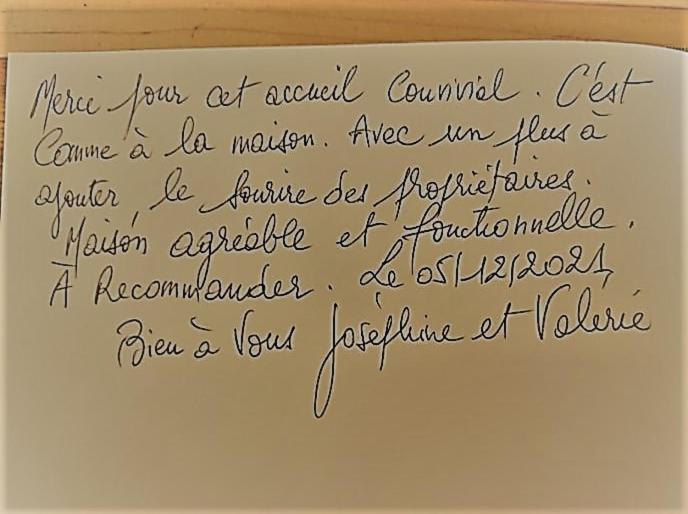 Merci pour cet accueil Convivial. C'est
Comme à la maison. Avec un plus à
ajouter, le sourire des propriétaires.
Maison agréable et fonctionnelle.
À Recommander. Le 05/12/2021,
Bien à Vous Joséphine et Valérie